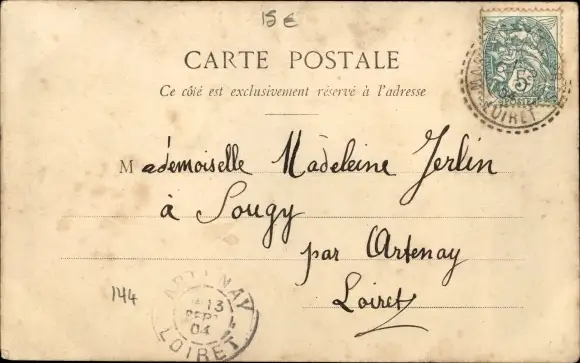 15 €
CARTE POSTALE
Ce côté est exclusivement réservé à l'adresse
Mademoiselle Madeleine Jerlin
à Sougy
par Artenay
Loiret
144
ARTENAY
13
SEPT
04
LOIRET
5
POSTES
LOIRET